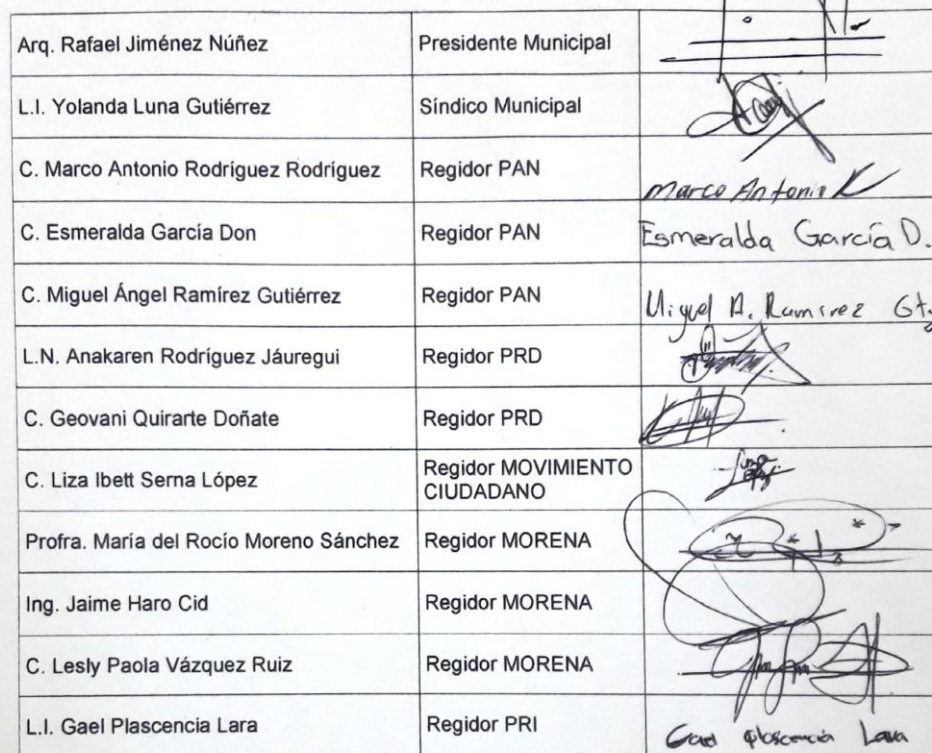 Arq. Rafael Jiménez Núñez Presidente Municipal
L.I. Yolanda Luna Gutiérrez Síndico Municipal
C. Marco Antonio Rodríguez Rodríguez Regidor PAN
Marco Antonio
C. Esmeralda García Don Regidor PAN Esmeralda García D.
C. Miguel Ángel Ramírez Gutiérrez Regidor PAN
Miguel A. Ramirez
L.N. Anakaren Rodríguez Jáuregui Regidor PRD
C. Geovani Quirarte Doñate Regidor PRD
C. Liza Ibett Serna López Regidor MOVIMIENTO
CIUDADANO
Profra. María del Rocío Moreno Sánchez Regidor MORENA
Ing. Jaime Haro Cid Regidor MORENA
C. Lesly Paola Vázquez Ruiz Regidor MORENA
L.I. Gael Plascencia Lara Regidor PRI
Gael Plascencia Lara